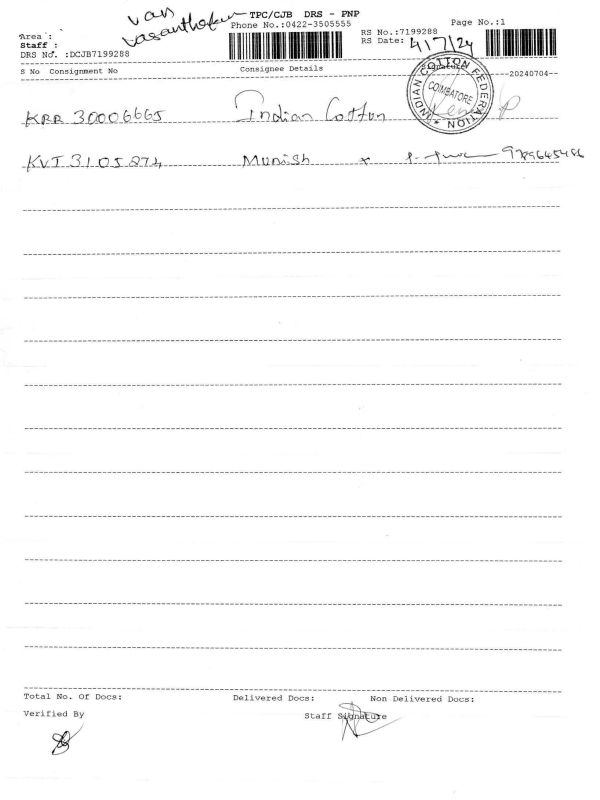 van
TPC/CJB DRS - PNP
Phone No.:0422-3505555
Page No.:1
Area :
Staff :
DRS No. :DCJB7199288
RS No.:7199288
RS Date: 4/7/24
S No Consignment No Consignee Details Signature --20240704--
INDIAN COTTON FEDERATION
COIMBATORE
KRR 30006665 Indian Cotton
KVT 3105274 Munish
Total No. Of Docs: Delivered Docs: Non Delivered Docs:
Verified By Staff Signature